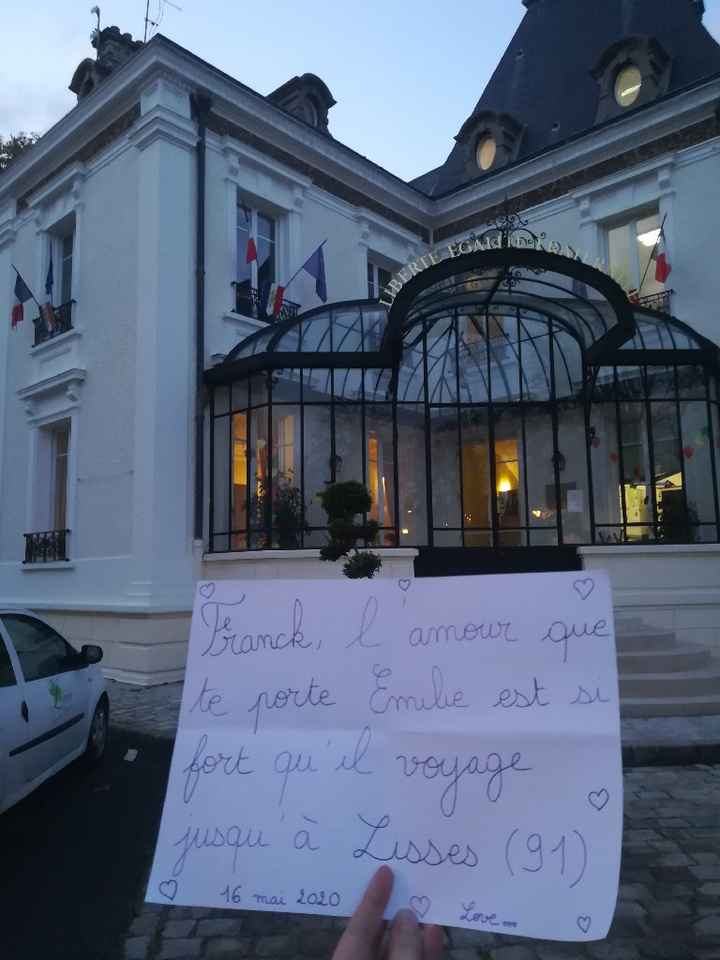 LIBERTE EGALITE FRATERNITE
Franck, l'amour que
te porte Emilie est si
fort qu'il voyage
jusqu'à Lisses (91)
16 mai 2020
Love...